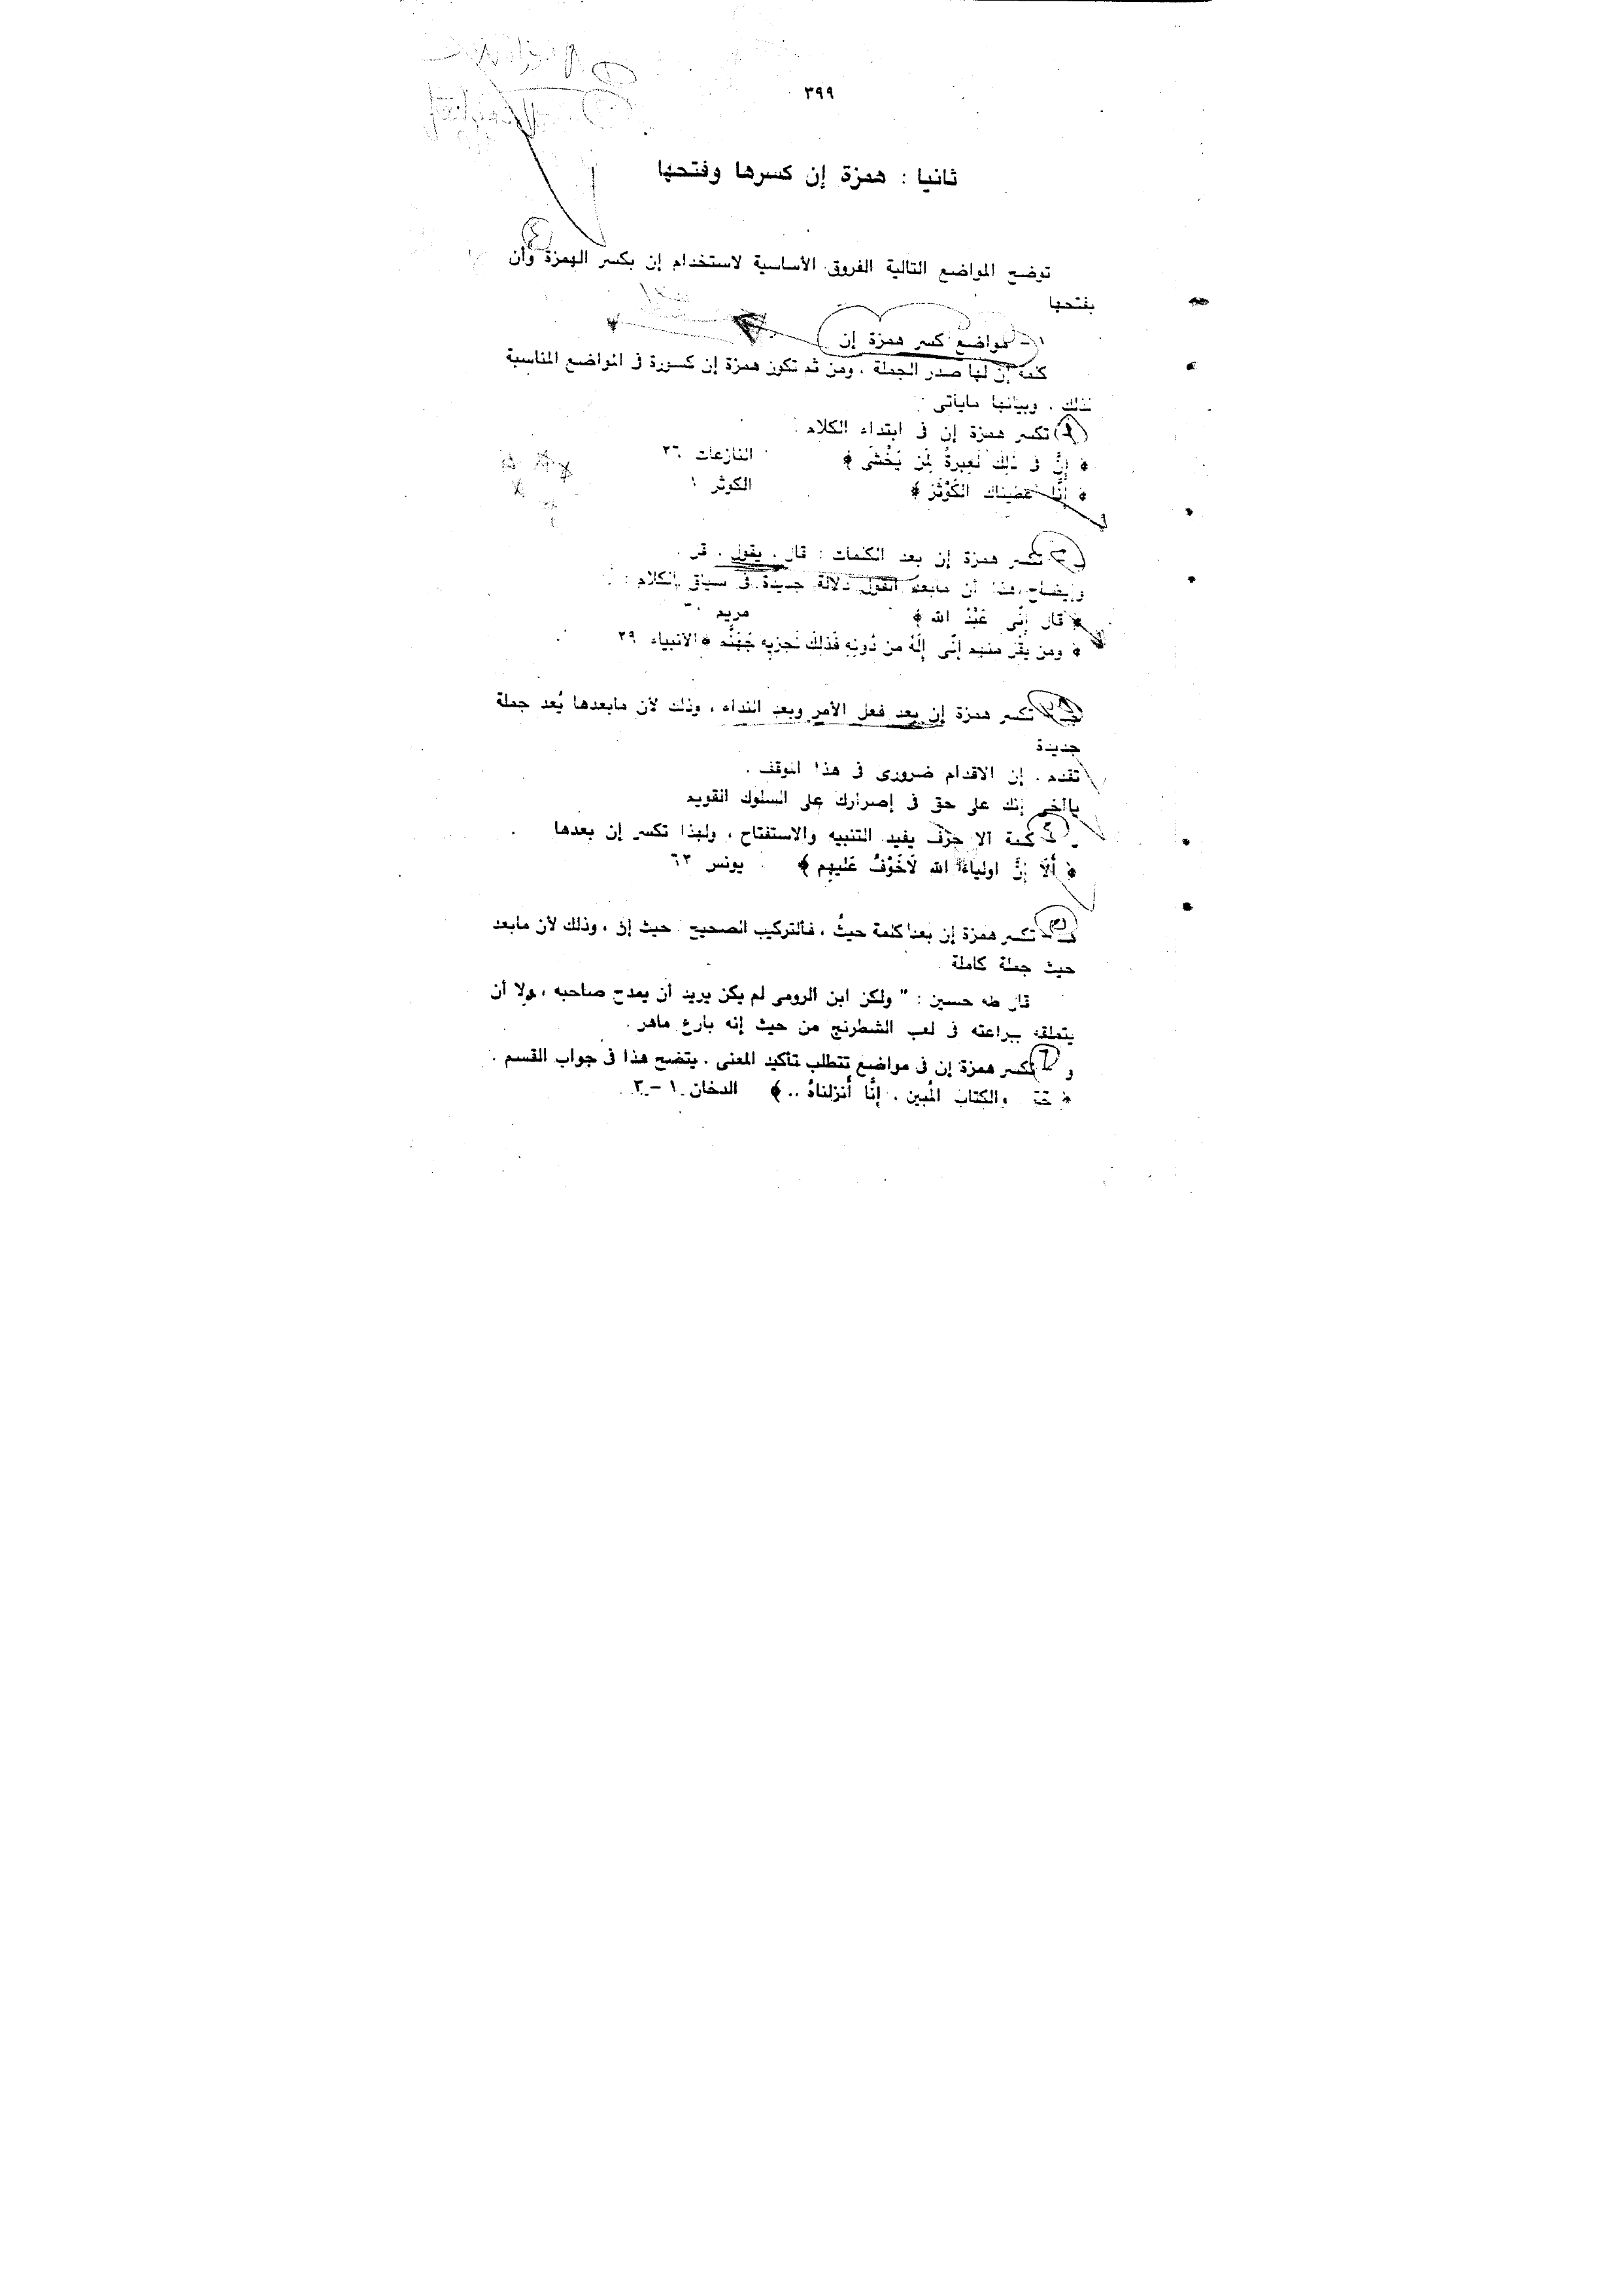 ٣٩٩
ثانيا : همزة إن كسرها وفتحها
توضح المواضع التالية الفروق الأساسية لاستخدام إن بكسر الهمزة وأن
بفتحها
١ - مواضع كسر همزة إن
كلمة إن لها صدر الجملة ، ومن ثم تكون همزة إن كسورة فى المواضع المناسبة
لذلك . وبيانها مايأتى :
تكسر همزة إن فى ابتداء الكلام .
﴿ إِنَّ فى ذلِكَ لَعِبرةً لِمَن يَخْشَى ﴾ النازعات ٢٦
﴿ إنَّا أعطيناك الكَوْثَرَ ﴾ الكوثر ١
ب - تكسر همزة إن بعد الكلمات : قال . يقول . قل .
وإيضاح هذا أن مابعد القول دلالة جديدة فى سياق الكلام :
﴿ قال إنّى عَبْدُ الله ﴾ مريم
﴿ ومن يقُل منهم إنّى إلَهُ من دُونِهِ فَذلِكَ نَجزيِه جَهَنَّم ﴾ الأنبياء ٢٩
تكسر همزة إن بعد فعل الأمر وبعد النداء ، وذلك لأن مابعدها يُعد جملة
جديدة
تقدم . إن الاقدام ضرورى فى هذا الموقف .
ياأخى إنك على حق فى إصرارك على السلوك القويم
كلمة ألا حرف يفيد التنبيه والاستفتاح ، ولهذا تكسر إن بعدها
﴿ أَلَا إنَّ اولياءَ الله لَاخَوْفُ عَليهِم ﴾ يونس ٦٢
تكسر همزة إن بعد كلمة حيثُ ، فالتركيب الصحيح حيث إن ، وذلك لأن مابعد
حيث جملة كاملة .
قال طه حسين : " ولكن ابن الرومى لم يكن يريد أن يمدح صاحبه ، ولا أن
يتملقه ببراعته فى لعب الشطرنج من حيث إنه بارع ماهر .
و - تكسر همزة إن فى مواضع تتطلب تأكيد المعنى . يتضح هذا فى جواب القسم .
﴿ والكتاب المُبين . إنَّا أَنزلناهُ .. ﴾ الدخان ١ - ٣